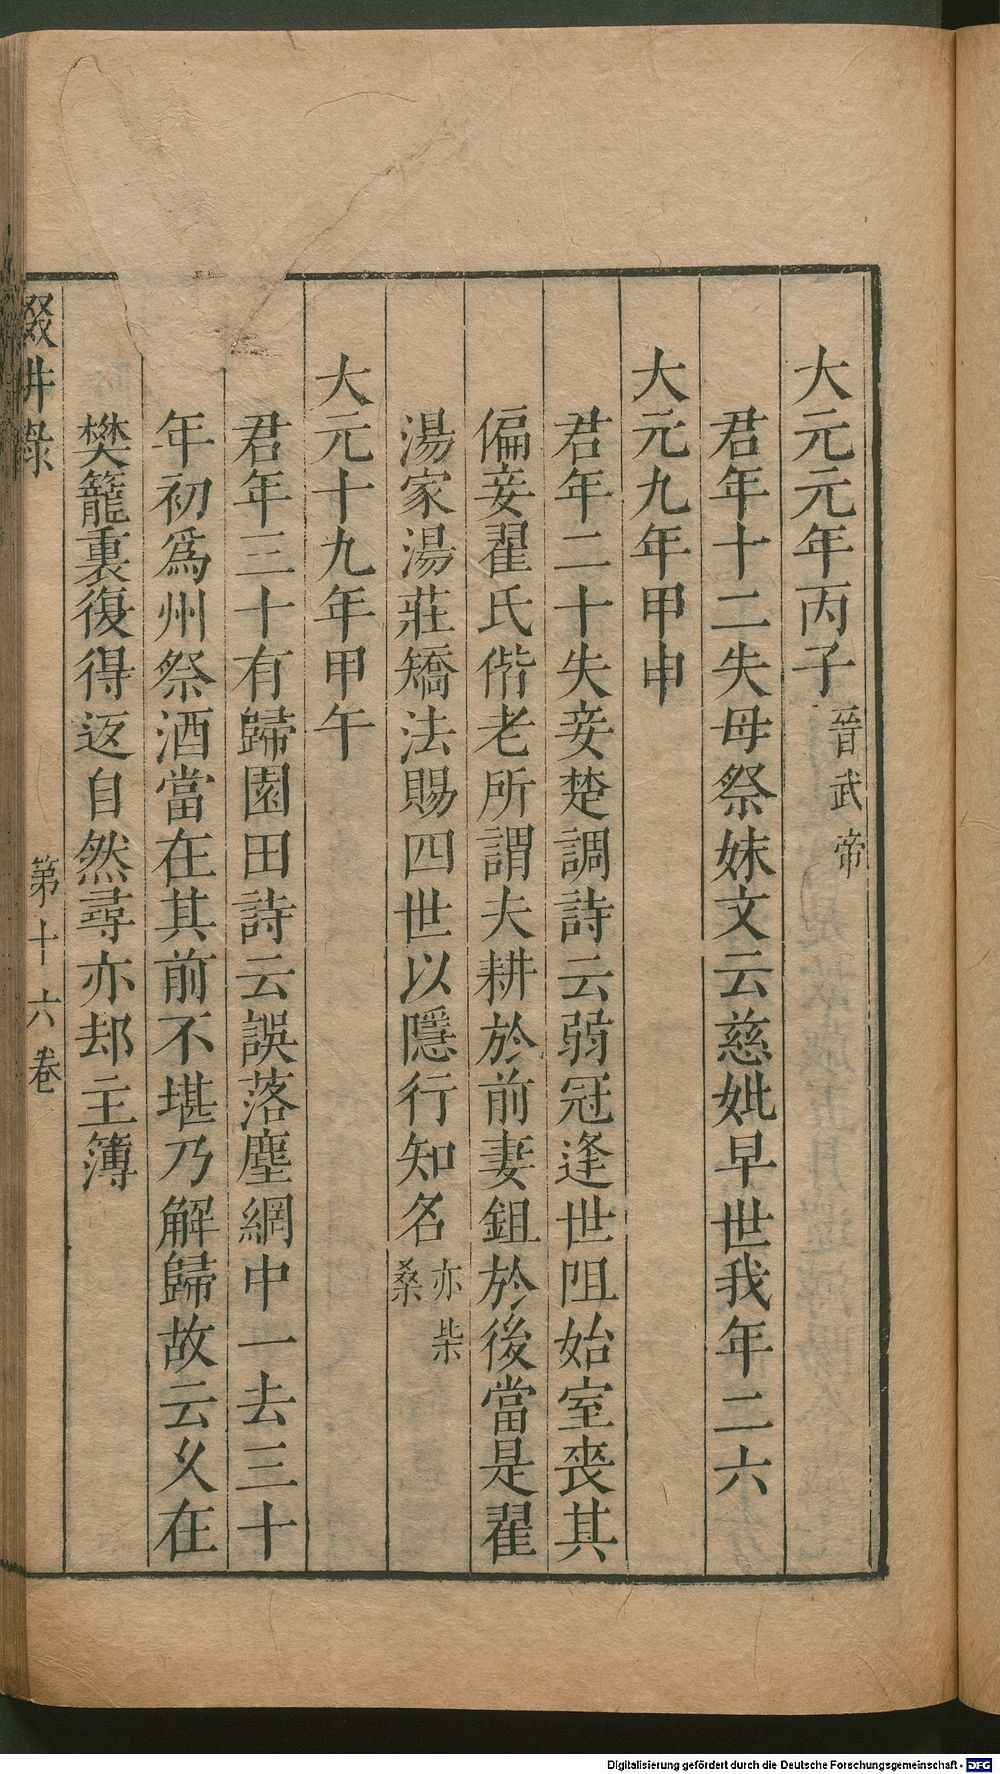 大元元年丙子晉武帝
君年十二失母祭妹文云慈妣早世我年二六
大元九年甲申
君年二十失妾楚調詩云弱冠逢世阻始室喪其
偏妾翟氏偕老所謂夫耕於前妻鉏於後當是翟
湯家湯莊矯法賜四世以隱行知名亦柴桑
大元十九年甲午
君年三十有歸園田詩云誤落塵網中一去三十
年初爲州祭酒當在其前不堪乃解歸故云久在
樊籠裏復得返自然尋亦却主簿
輟耕錄 第十六卷
Digitalisierung gefördert durch die Deutsche Forschungsgemeinschaft - DFG